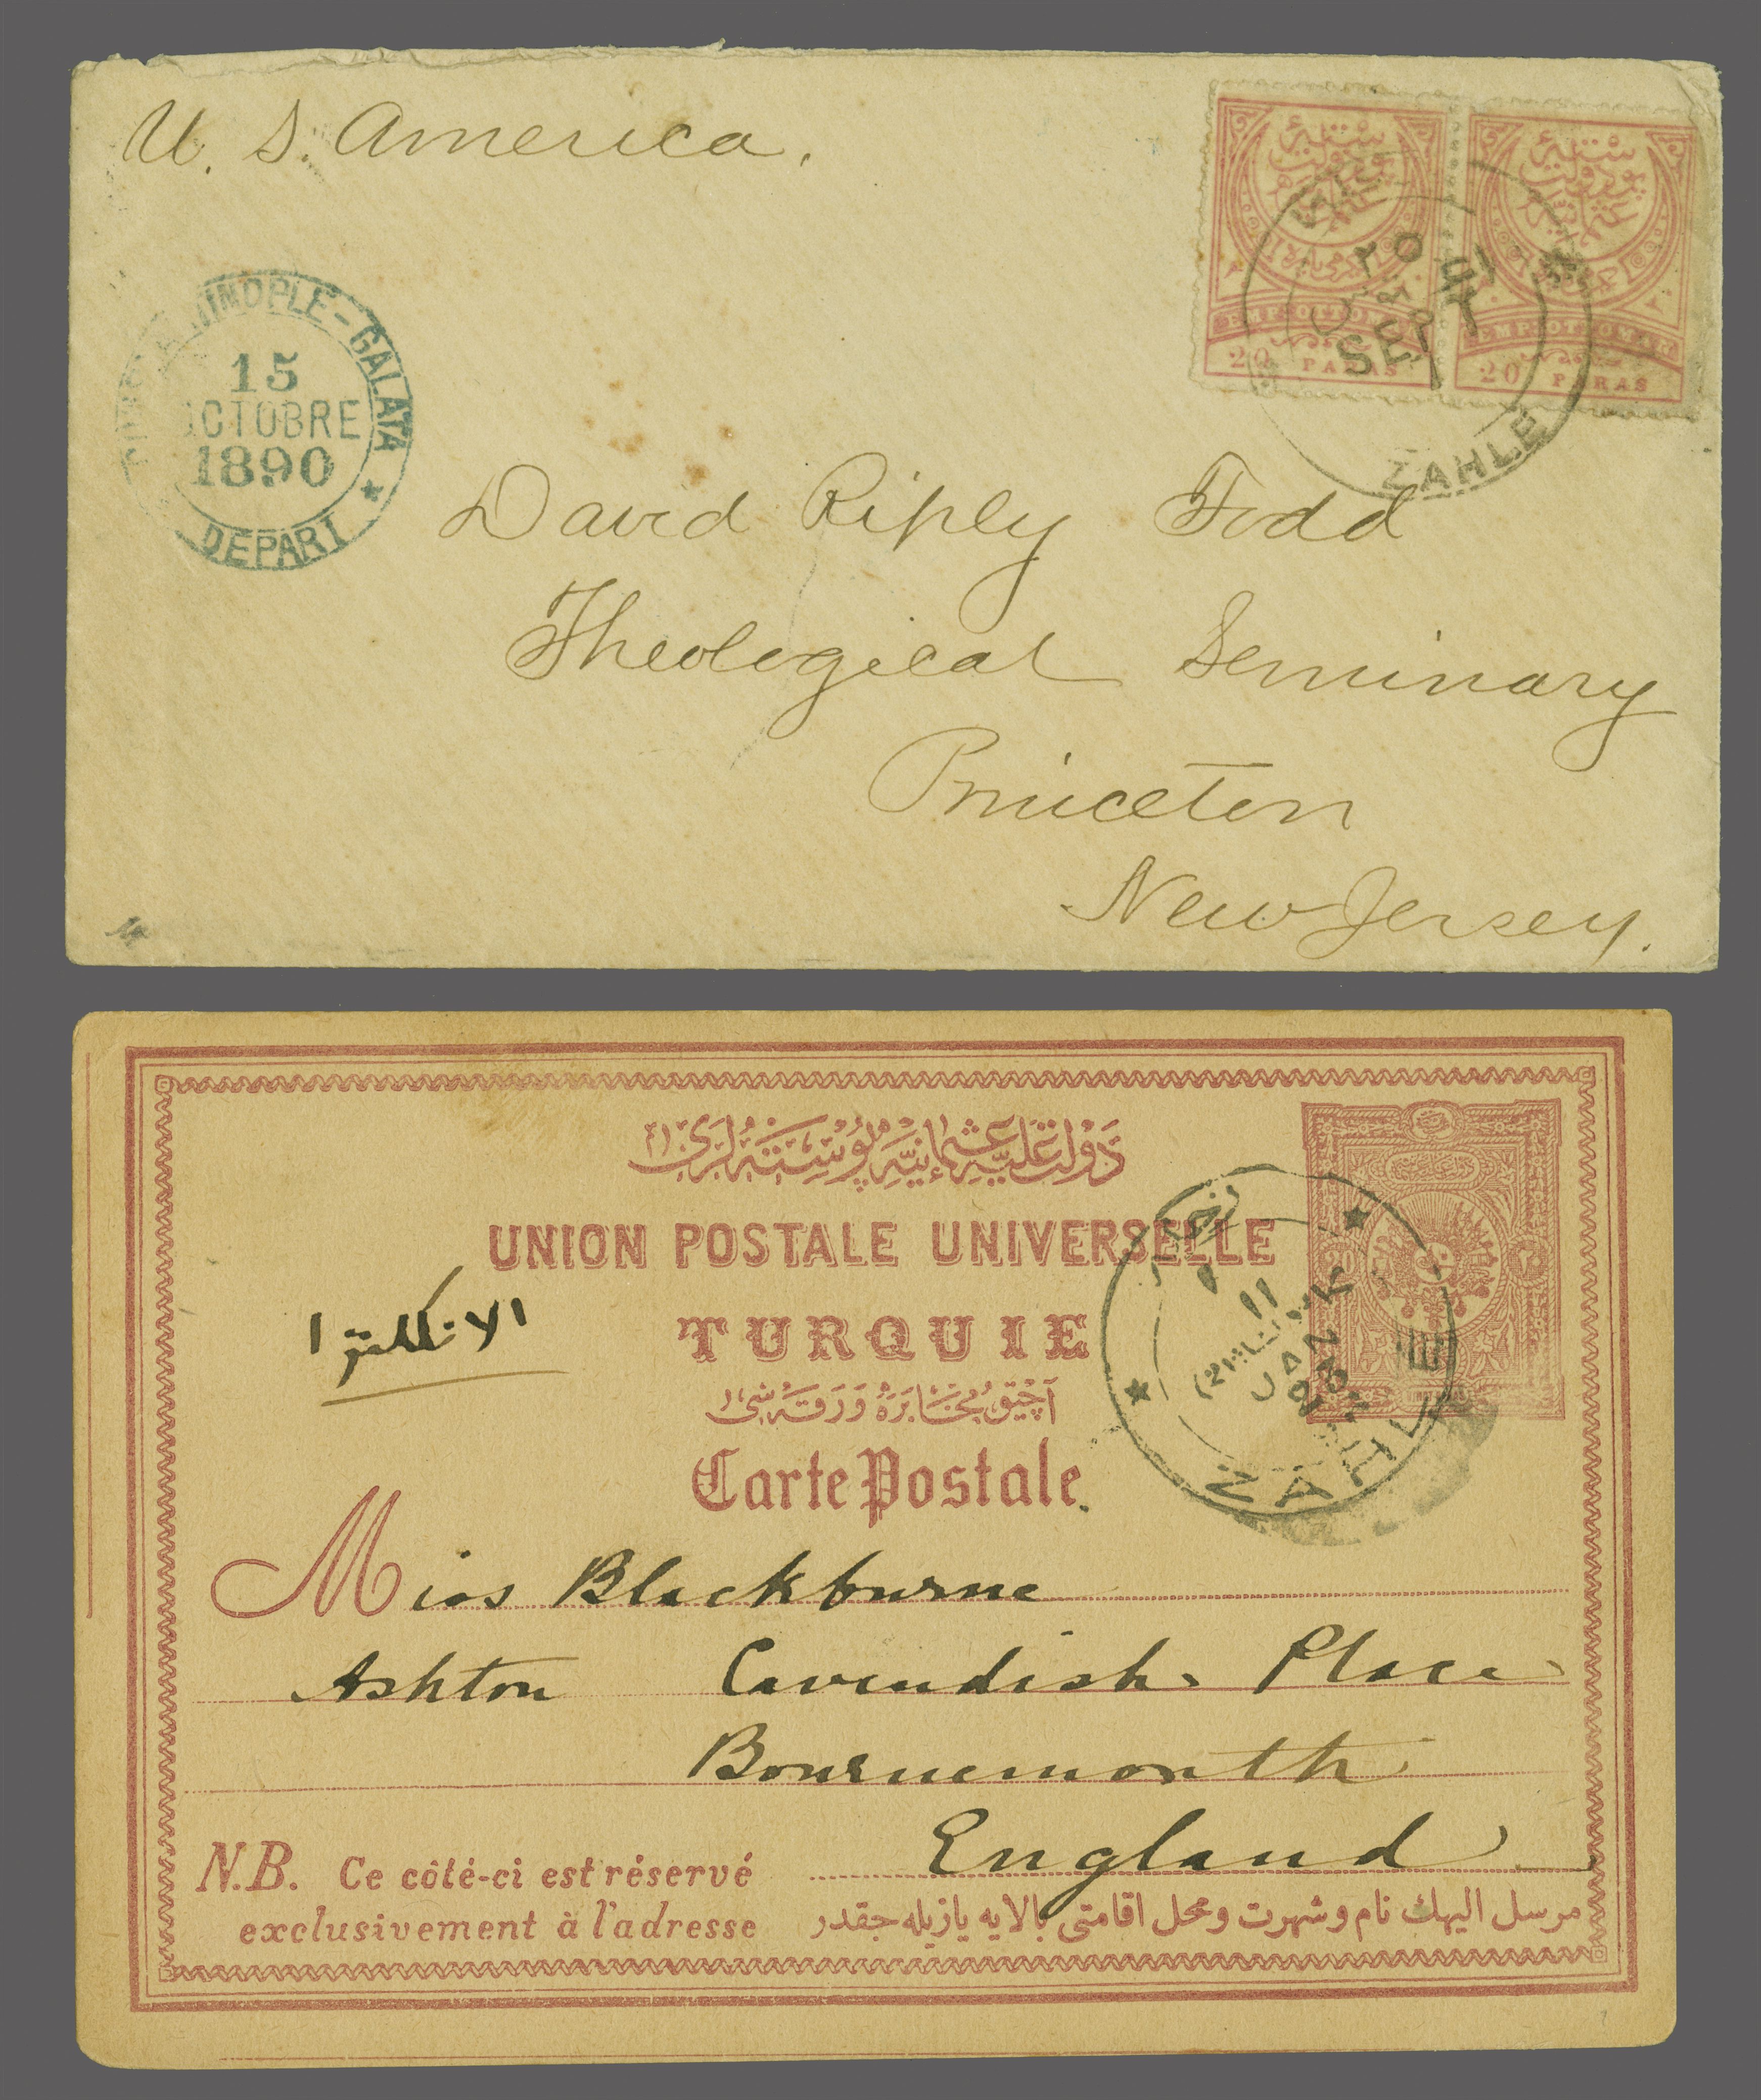 U. S. America.
EMP: OTTOMAN
20 PARAS
EMP: OTTOMAN
20 PARAS
٢٥
SEPT
ZAHLE
NOPLE-GALATA
15
OCTOBRE
1890
DEPART
David Ripley Todd
Theological Seminary
Princeton
New Jersey.
دولت عليه عثمانيه پوسته لرى
UNION POSTALE UNIVERSELLE
TURQUIE
الانكلترا
آچيق مخابره ورقه سى
Carte Postale.
JAN
ZAHLE
20
Miss Blackburne
Ashton Cavendish Place
Bournemouth
England
N.B. Ce côté-ci est réservé
exclusivement à l'adresse
مرسل اليهك نام وشهرت ومحل اقامتى بالايه يازيله جقدر